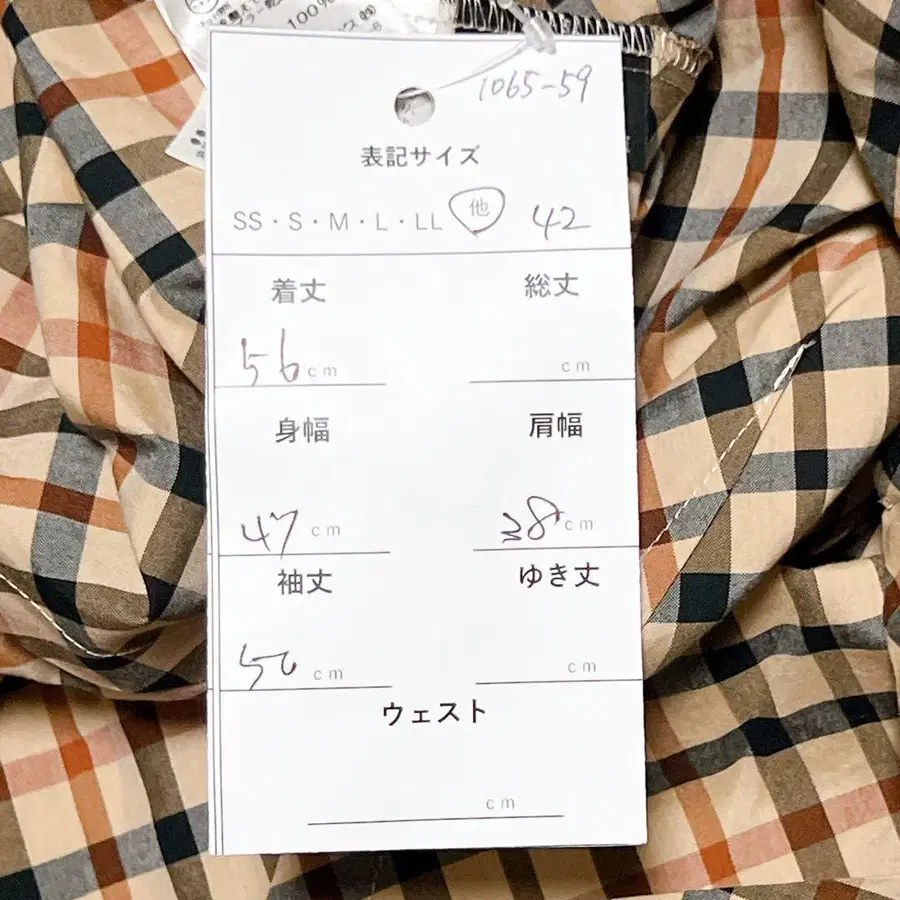 100%
1065-59
表記サイズ
SS・S・M・L・LL 他 42
着丈 総丈
56 cm cm
身幅 肩幅
47 cm 38 cm
袖丈 ゆき丈
50 cm cm
ウェスト
cm